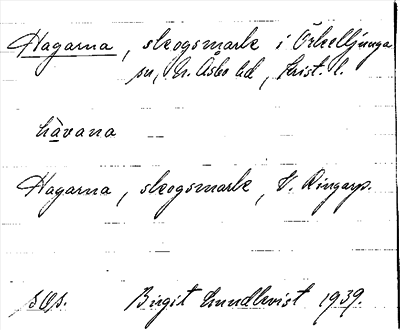 Hagarna, skogsmark i Örkelljunga
sn, N. Åsbo hd, Krist. l.
hàvana
Hagarna, skogsmark, V. Ringarp.
Birgit Lundkvist 1939.